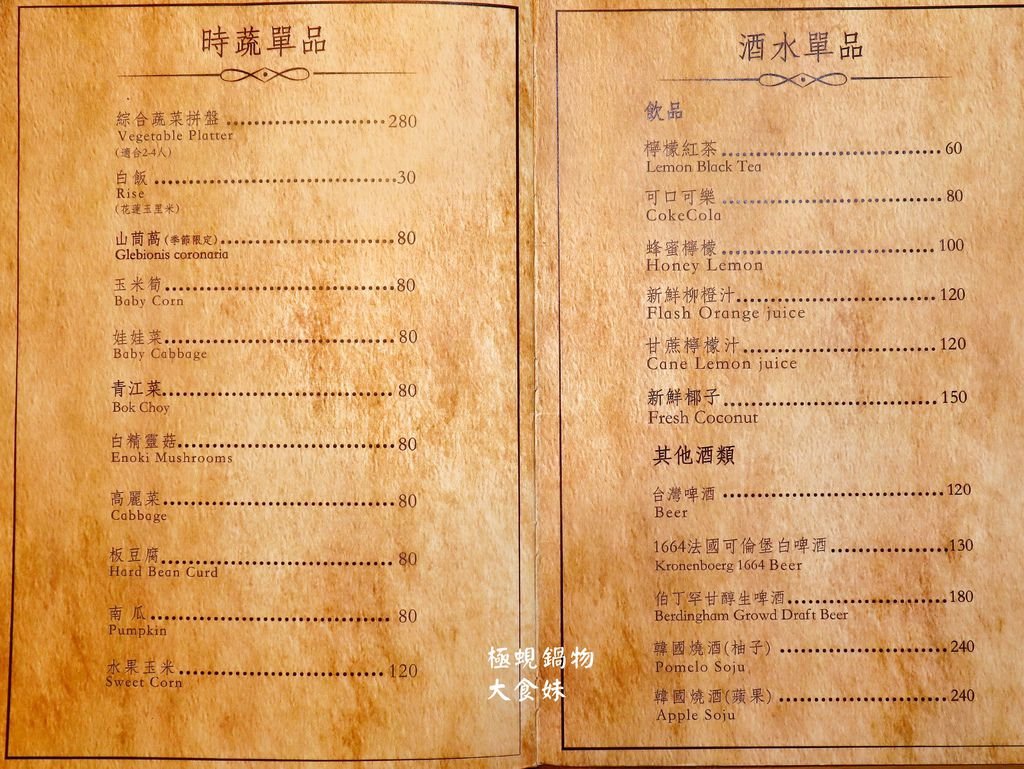 時蔬單品
綜合蔬菜拼盤 280
Vegetable Platter
(適合2-4人)
白飯 30
Rise
(花蓮玉里米)
山茼萵(季節限定) 80
Glebionis coronaria
玉米筍 80
Baby Corn
娃娃菜 80
Baby Cabbage
青江菜 80
Bok Choy
白精靈菇 80
Enoki Mushrooms
高麗菜 80
Cabbage
板豆腐 80
Hard Bean Curd
南瓜 80
Pumpkin
水果玉米 120
Sweet Corn
酒水單品
飲品
檸檬紅茶 60
Lemon Black Tea
可口可樂 80
CokeCola
蜂蜜檸檬 100
Honey Lemon
新鮮柳橙汁 120
Flash Orange juice
甘蔗檸檬汁 120
Cane Lemon juice
新鮮椰子 150
Fresh Coconut
其他酒類
台灣啤酒 120
Beer
1664法國可倫堡白啤酒 130
Kronenboerg 1664 Beer
伯丁罕甘醇生啤酒 180
Berdingham Growd Draft Beer
韓國燒酒(柚子) 240
Pomelo Soju
韓國燒酒(蘋果) 240
Apple Soju
極蜆鍋物
大食妹